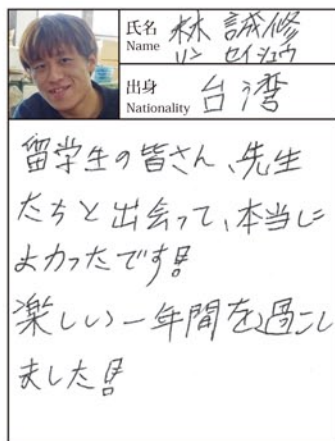 氏名 林 誠修
Name リン セイシュウ
出身 台湾
Nationality
留学生の皆さん、先生
たちと出会って、本当に
よかったです!!
楽しい一年間を過ごし
ました!!